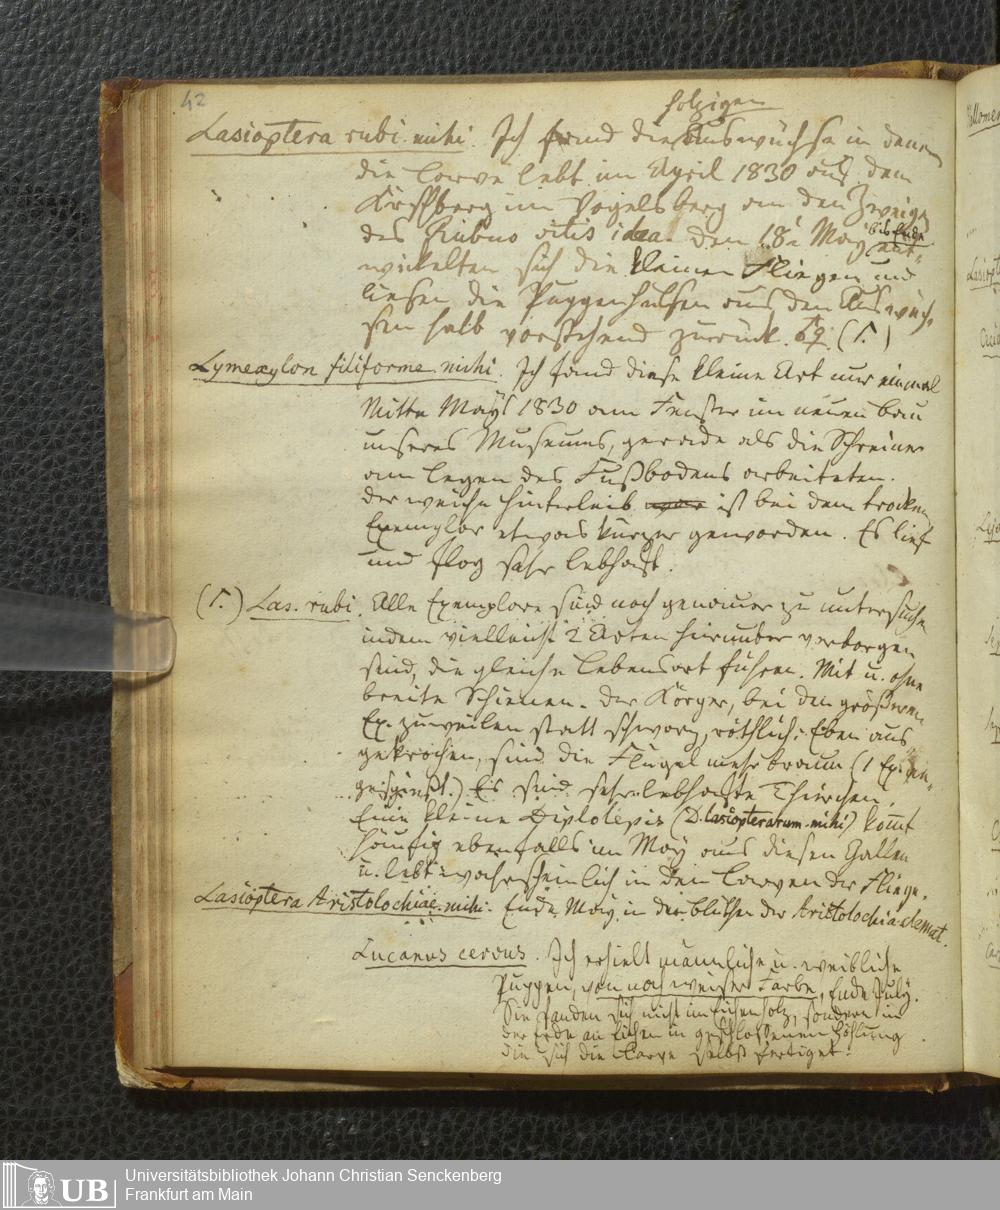 42
holzigen
Lasioptera rubi. mihi. Ich fand die Auswüchse in denen
die Larve lebt im April 1830 auf dem
im Vogelsberg an den Zweigen
des Rubus vitis idea. den 18n May bis Ende ent-
wickelten sich die kleinen Fliegen und
ließen die Puppenhülsen aus den Auswüch-
sen halb vorstehend zurück. (1.)
Lymexylon filiforme. mihi. Ich fand diese kleine Art nur einmal
Mitte Mays 1830 am Fenster im neuen bau
unseres Museums, gerade als die Schreiner
am legen des Fußbodens arbeiteten.
der weiche Hinterleib ist bei dem trocken
Exemplar etwas kürzer geworden. Es lief
und flog sehr lebhaft.
(1.) Las. rubi. Alle Exemplare sind noch genauer zu untersuchen
indem vielleicht 2 Arten hierunter verborgen
sind, die gleiche Lebensart führen. Mit u. ohne
breite Schienen. Der Körper, bei den größeren
Ex. zuweilen statt schwarz, röthlich. Eben aus
gekrochen, sind die Flügel mehr braun (1 Ex. an-
gespießt.) Es sind sehr lebhafte Thierchen.
Eine kleine Diplolepis (D. lasiopterarum. mihi) kom̄t
häufig ebenfalls im May aus diesen Gallen
u. lebt wahrscheinlich in den Larven der Fliege.
Lasioptera Aristolochiae. mihi. Ende May in der blüthe der Aristolochia clemat.
Lucanus cervus. Ich erhielt männliche u. weibliche
Puppen, von noch weißer Farbe, Ende July.
Sie fanden sich nicht im Eichenholz, sondern in
der Erde an Eichen in geschlossenen Höhlung
die sich die Larve selbst fertiget.
UB
Universitätsbibliothek Johann Christian Senckenberg
Frankfurt am Main